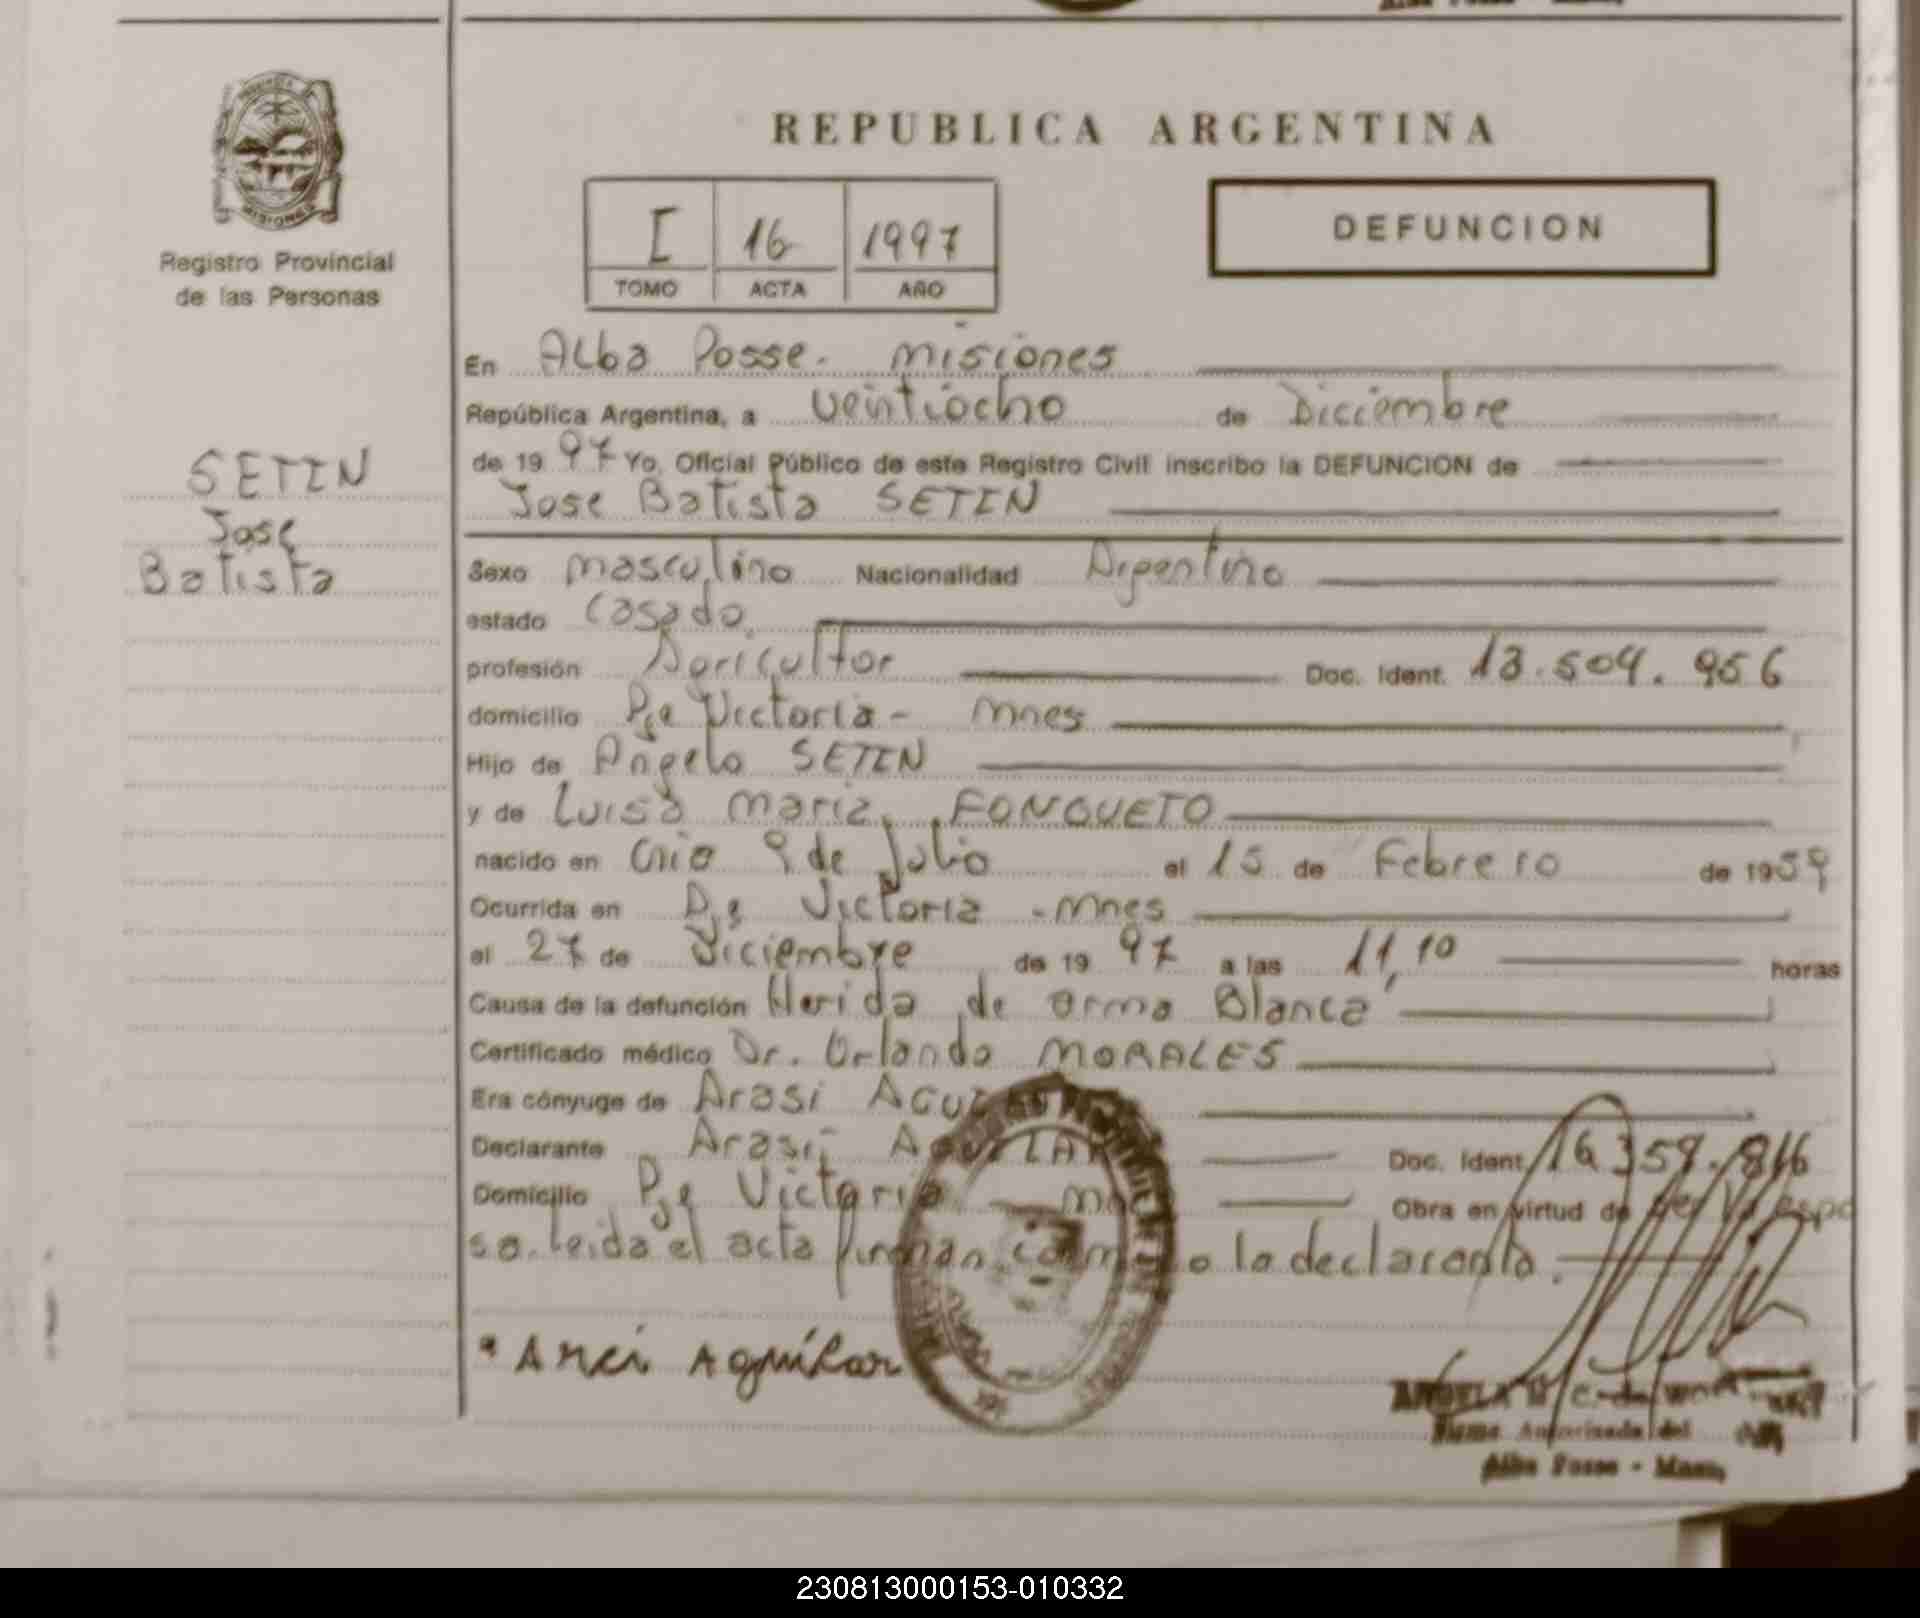 REPUBLICA ARGENTINA
PROVINCIA
MISIONES
Registro Provincial
de las Personas
I 16 1997
TOMO ACTA AÑO
DEFUNCION
SETIN
Jose
Batista
En Alba Posse - misiones
República Argentina, a veintiocho de Diciembre
de 1997 Yo, Oficial Público de este Registro Civil inscribo la DEFUNCION de
Jose Batista SETIN
Sexo masculino Nacionalidad Argentino
estado Casado
profesión Agricultor Doc. Ident. 13.504.956
domicilio Pje Victoria - Mnes
Hijo de Angelo SETIN
y de Luisa Maria FONQUETO
nacido en Cnia 9 de Julio el 15 de Febrero de 1959
Ocurrida en Pje Victoria - Mnes
el 27 de Diciembre de 1997 a las 11,10 horas
Causa de la defunción Herida de arma Blanca
Certificado médico Dr. Orlando MORALES
Era cónyuge de Arasi
Declarante Arasi AGUILAR Doc. Ident. 16.359.816
Domicilio Pje Victoria Obra en virtud de ser la espo
sa. Leida el acta firman conmigo la declarante.
Arci Aguilar
ANGELA
Firma Autorizada del
Alba Posse - Mnes
230813000153-010332